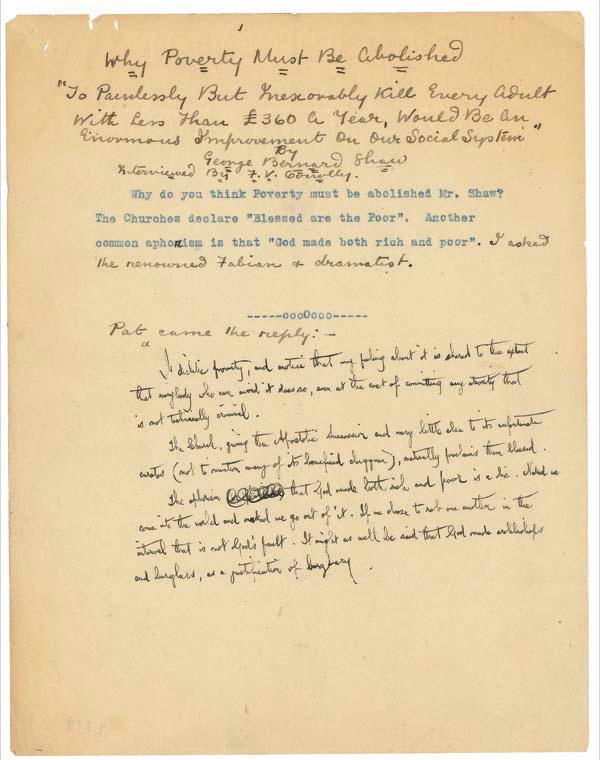 Why Poverty Must Be Abolished
"To Painlessly But Inexorably Kill Every Adult
With Less Than £360 A Year, Would Be An
Enormous Improvement On Our Social System"
By
George Bernard Shaw
Interviewed By F. V. Conolly.
Why do you think Poverty must be abolished Mr. Shaw?
The Churches declare "Blessed are the Poor". Another
common aphorism is that "God made both rich and poor". I asked
the renowned Fabian & dramatist.
-----oooOooo-----
Pat came the reply:—
I dislike poverty, and notice that my feeling about it is shared to the extent
that everybody who can avoid it does so, even at the cost of committing any atrocity that
is not technically criminal.
The Church, giving the Apostolic Succession and very little else to its unfortunate
curates (not to mention many of its beneficed clergymen), naturally proclaims them blessed.
The aphorism that God made both rich and poor is a lie. Naked we
come into the world and naked we go out of it. If we choose to rob one another in the
interval that is not God's fault. It might as well be said that God made archbishops
and burglars, as a justification of burglary.